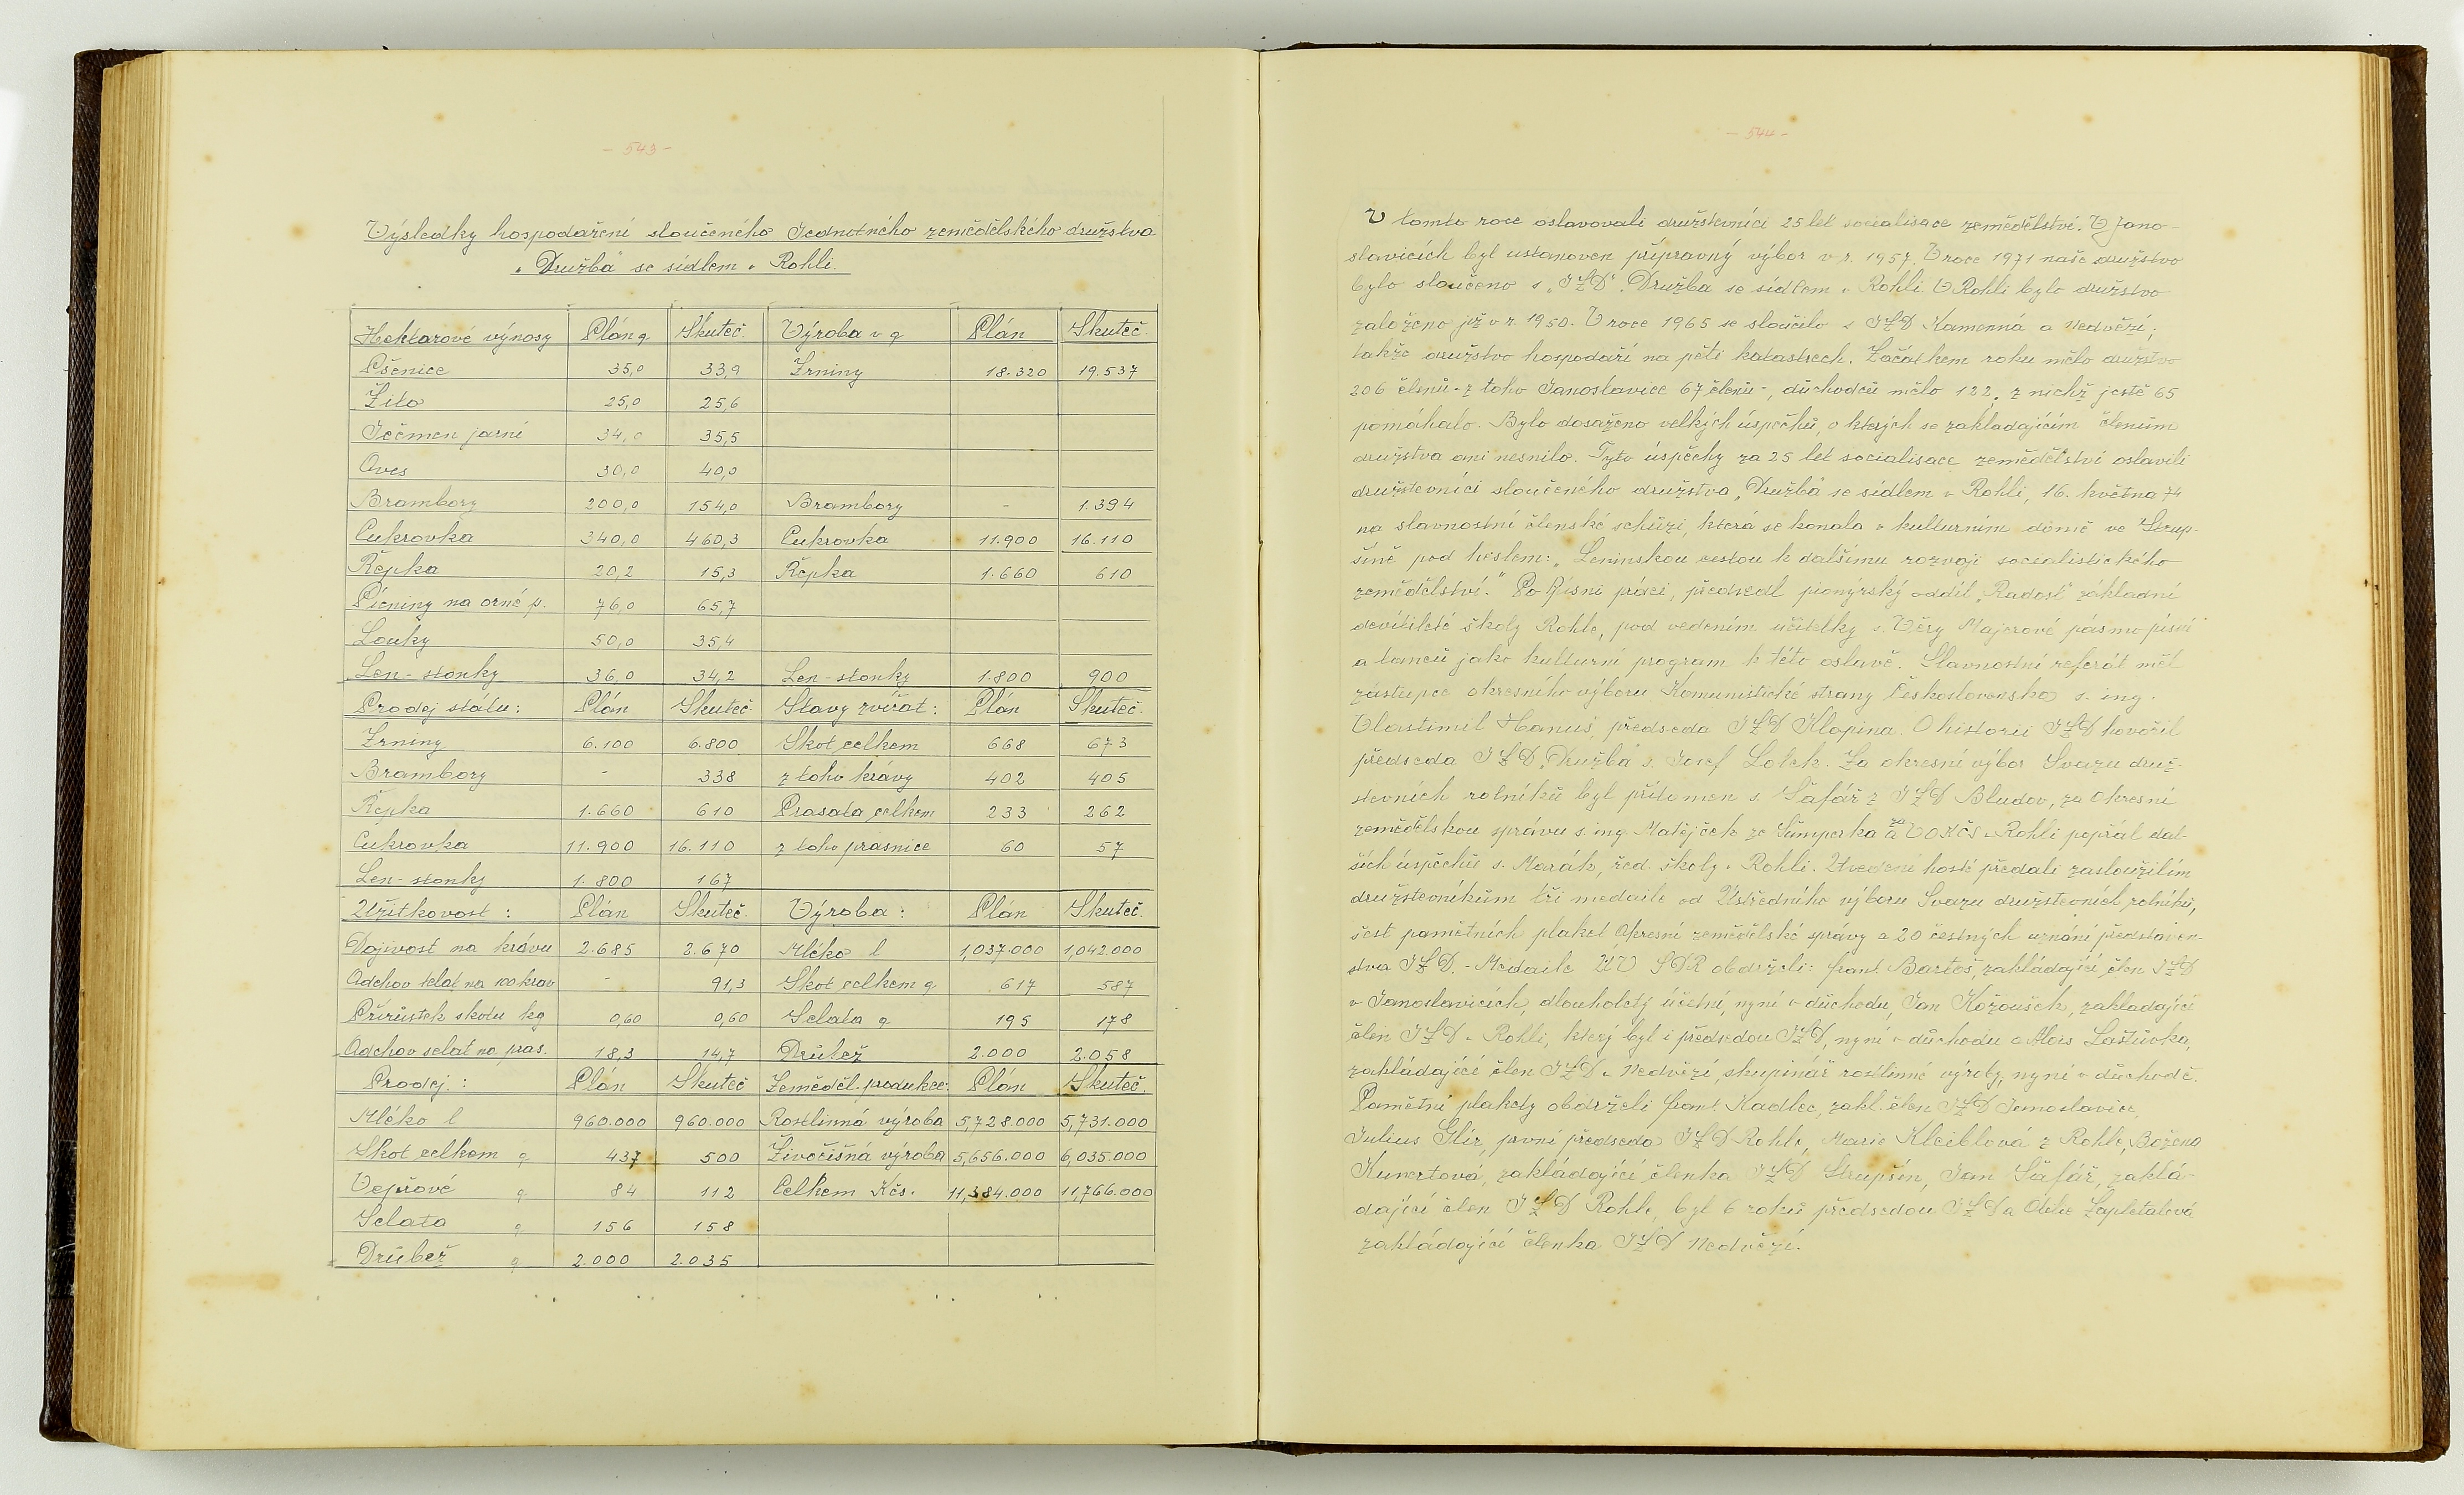 - 543 -
Výsledky hospodaření sloučeného Jednotného zemědělského družstva
„Družba" se sídlem v Rohli.
Hektarové výnosy Plán q Skuteč. Výroba v q Plán Skuteč.
Pšenice 35,0 33,9 Zrniny 18.320 19.537
Žito 25,0 25,6
Ječmen jarní 34,0 35,5
Oves 30,0 40,0
Brambory 200,0 154,0 Brambory - 1.394
Cukrovka 340,0 460,3 Cukrovka 11.900 16.110
Řepka 20,2 15,3 Řepka 1.660 610
Pícniny na orné p. 76,0 65,7
Louky 50,0 35,4
Len - stonky 36,0 34,2 Len - stonky 1.800 900
Prodej státu: Plán Skuteč. Stavy zvířat: Plán Skuteč.
Zrniny 6.100 6.800 Skot celkem 668 673
Brambory - 338 z toho krávy 402 405
Řepka 1.660 610 Prasata celkem 233 262
Cukrovka 11.900 16.110 z toho prasnice 60 57
Len - stonky 1.800 167
Užitkovost: Plán Skuteč. Výroba: Plán Skuteč.
Dojivost na krávu 2.685 2.670 Mléko l 1,037.000 1,042.000
Odchov telat na 100 krav - 91,3 Skot celkem q 617 587
Přírůstek skotu kg 0,60 0,60 Selata q 195 178
Odchov selat na pras. 18,3 14,7 Drůbež 2.000 2.058
Prodej: Plán Skuteč Zeměděl. produkce: Plán Skuteč.
Mléko l 960.000 960.000 Rostlinná výroba 5,728.000 5,731.000
Skot celkem q 437 500 Živočišná výroba 5,656.000 6,035.000
Vepřové q 84 112 Celkem Kčs. 11,384.000 11,766.000
Selata q 156 158
Drůbež q 2.000 2.035
- 544 -
V tomto roce oslavovali družstevníci 25 let socialisace zemědělství. V Jano-
slavicích byl ustanoven přípravný výbor v r. 1957. V roce 1971 naše družstvo
bylo sloučeno s „JZD" Družba se sídlem v Rohli. V Rohli bylo družstvo
založeno již v r. 1950. V roce 1965 se sloučilo s JZD Kamenná a Nedvězí,
takže družstvo hospodaří na pěti katastrech. Začátkem roku mělo družstvo
206 členů - z toho Janoslavice 67 členů -, důchodců mělo 122, z nichž ještě 65
pomáhalo. Bylo dosaženo velkých úspěchů, o kterých se zakladajícím členům
družstva ani nesnilo. Tyto úspěchy za 25 let socialisace zemědělství oslavili
družstevníci sloučeného družstva „Družba" se sídlem v Rohli, 16. května 74
na slavnostní členské schůzi, která se konala v kulturním domě ve Strup-
šíně pod heslem: „Leninskou cestou k dalšímu rozvoji socialistického
zemědělství." Po Písni práci, předvedl pionýrský oddíl „Radost" základní
devítileté školy Rohle, pod vedením učitelky s. Věry Majerové pásmo písní
a tanců jako kulturní program k této oslavě. Slavnostní referát měl
zástupce okresního výboru Komunistické strany Československa s. ing.
Vlastimil Hanuš, předseda JZD Klopina. O historii JZD hovořil
předseda JZD „Družba" s. Josef Lolek. Za okresní výbor Svazu druž-
stevních rolníků byl přítomen s. Šafář z JZD Bludov, za Okresní
zemědělskou správu s. ing. Matějček ze Šumperka a za VO KSČ v Rohli popřál dal-
ších úspěchů s. Marák, řed. školy v Rohli. Uvedení hosté předali zasloužilým
družstevníkům tři medaile od Ústředního výboru Svazu družstevních rolníků,
šest pamětních plaket Okresní zemědělské správy a 20 čestných uznání představen-
stva JZD. - Medaile ÚV SDR obdrželi: frant. Bartoš, zakládající člen JZD
v Janoslavicích, dlouholetý účetní, nyní v důchodu, Jan Kožoušek, zakladající
člen JZD v Rohli, který byl i předsedou JZD, nyní v důchodu a Alois Laštůvka,
zakládající člen JZD v Nedvězí, skupinář rostlinné výroby, nyní v důchodě.
Pamětní plakety obdrželi frant. Kadlec, zakl. člen JZD Janoslavice,
Julius Glír, první předseda JZD Rohle, Marie Kleiblová z Rohle, Božena
Kunertová, zakládající členka JZD Strupšín, Jan Šafář, zaklá-
dající člen JZD Rohle, byl 6 roků předsedou JZD a Otilie Zapletalová
zakládající členka JZD Nedvězí.